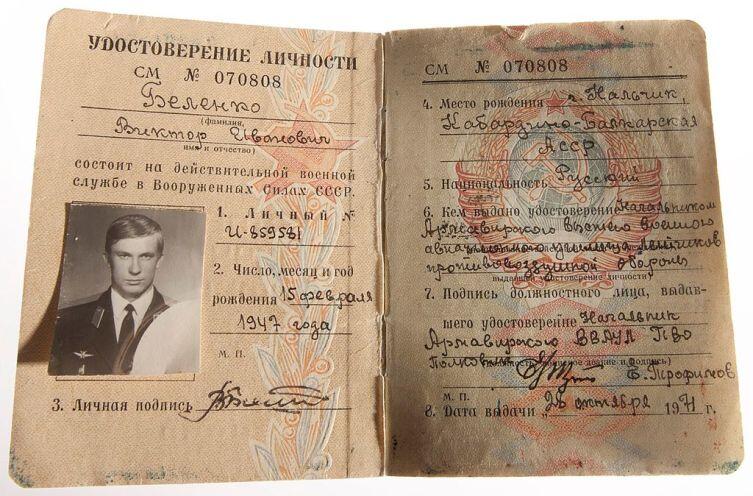 УДОСТОВЕРЕНИЕ ЛИЧНОСТИ
СМ № 070808
Беленко
(фамилия,
Виктор Иванович
имя и отчество)
состоит на действительной военной
службе в Вооруженных Силах СССР.
1. Личный №
И-859581
2. Число, месяц и год
рождения 15 февраля
1947 года
М. П.
3. Личная подпись
СМ № 070808
4. Место рождения г. Нальчик,
Кабардино-Балкарская
АССР
5. Национальность Русский
6. Кем выдано удостоверение Начальником
Армавирского высшего военного
авиационного училища лётчиков
противовоздушной обороны
7. Подпись должностного лица, выдав-
шего удостоверение Начальник
Армавирского ВВАУЛ ПВО
Полковник Е. Трофимов
М. П.
8. Дата выдачи „28 октября 1971 г.